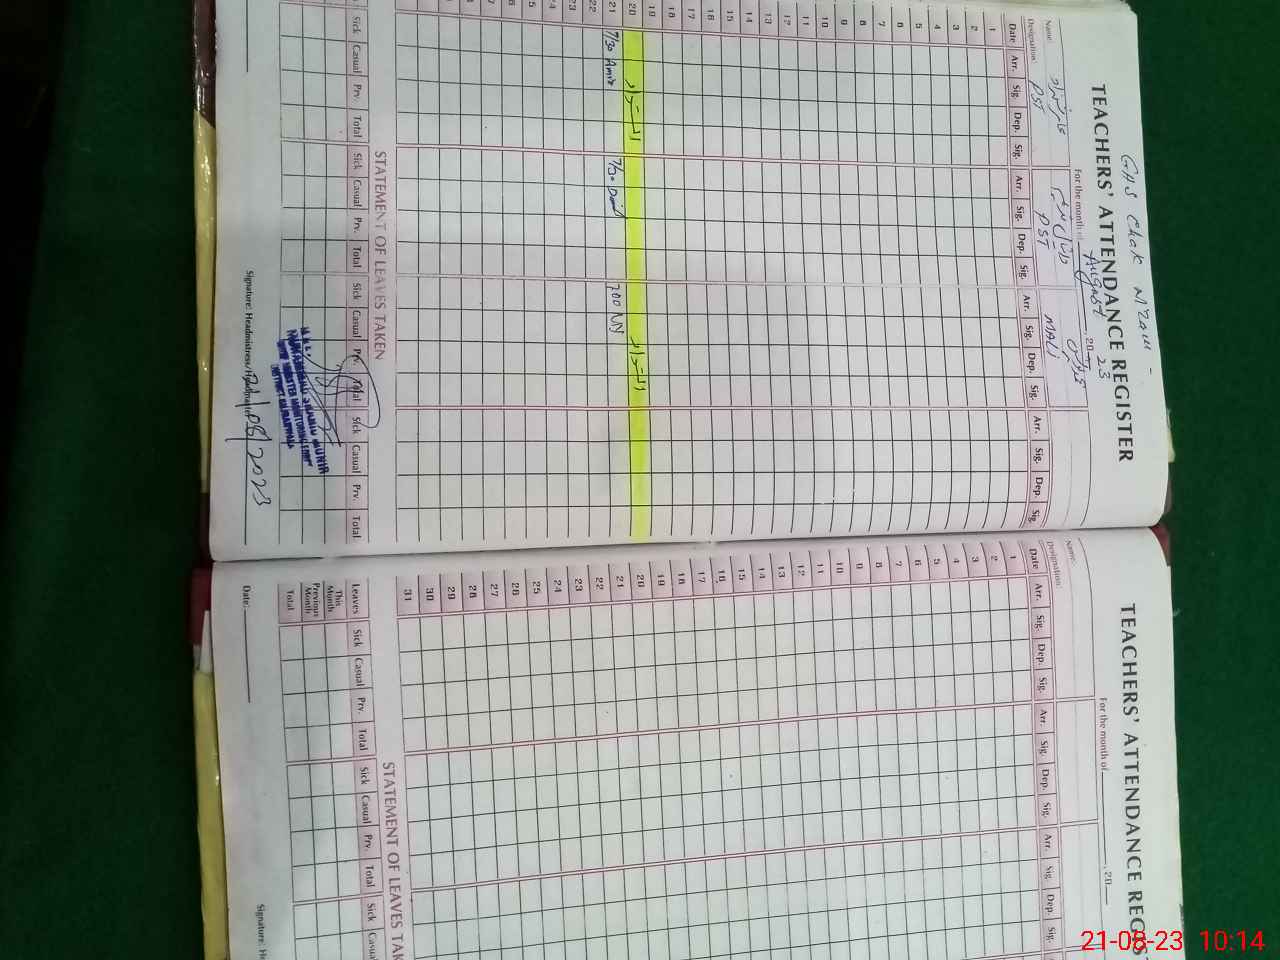 GHS Chak
TEACHERS' ATTENDANCE REGISTER
For the month of August, 2023
Name:
Designation: PST PST MALI
Date Arr. Sig. Dep. Sig. Arr. Sig. Dep. Sig. Arr. Sig. Dep. Sig. Arr. Sig. Dep. Sig.
1
2
3
4
5
6
7
8
9
10
11
12
13
14
15
16
17
18
19
20 اتوار اتوار
21 7/30 Amir 7/30 700
22
23
24
STATEMENT OF LEAVES TAKEN
Sick Casual Prv. Total Sick Casual Prv. Total Sick Casual Prv. Total Sick Casual Prv. Total
Signature: Headmistress/Headmaster
21/08/2023
TEACHERS' ATTENDANCE REGIS
For the month of , 20
Name:
Designation:
Date Arr. Sig. Dep. Sig. Arr. Sig. Dep. Sig. Arr. Sig. Dep. Sig.
1
2
3
4
5
6
7
8
9
10
11
12
13
14
15
16
17
18
19
20
21
22
23
24
25
26
27
28
29
30
31
STATEMENT OF LEAVES TA
Leaves Sick Casual Prv. Total Sick Casual Prv. Total Sick Casual
This Month
Previous Month
Total
Date: Signature: He
21-08-23 10:14